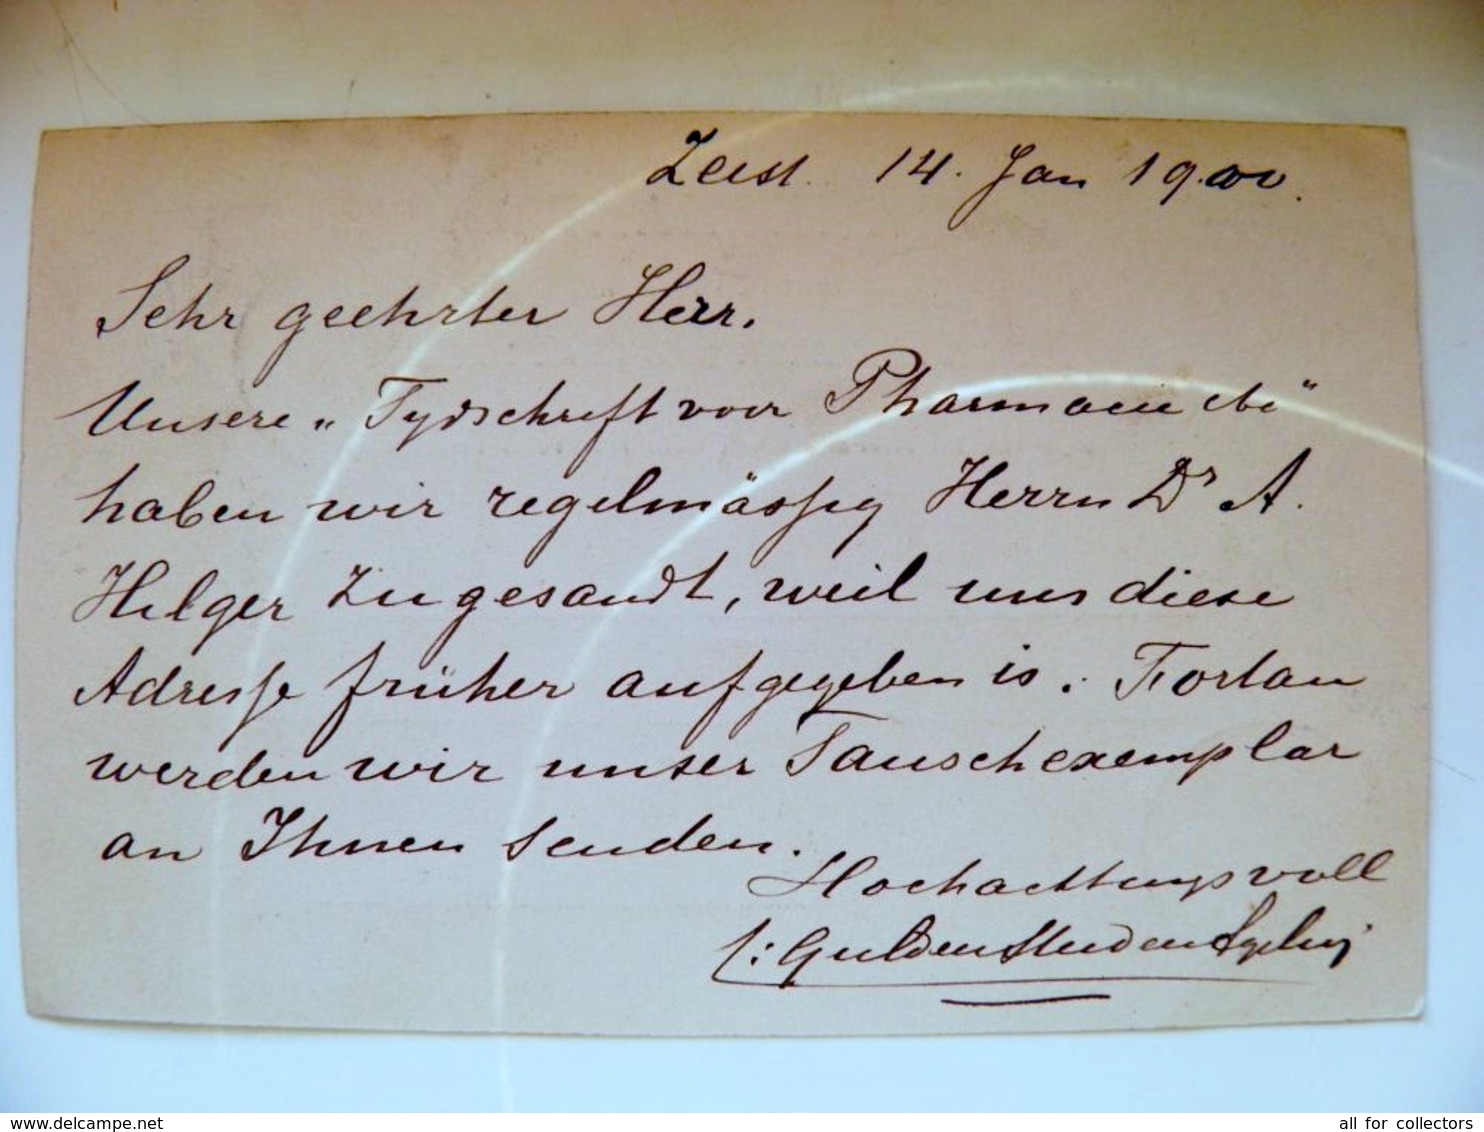 Zeist. 14. Jan 1900.
Sehr geehrter Herr.
Unsere „Tydschrift voor Pharmacie etc"
haben wir regelmässig Herrn Dr A.
Hilger zugesandt, weil uns diese
Adresse früher aufgegeben is. Fortan
werden wir unser Tauschexemplar
an Ihnen senden.
Hochachtungsvoll
www.delcampe.net
all for collectors